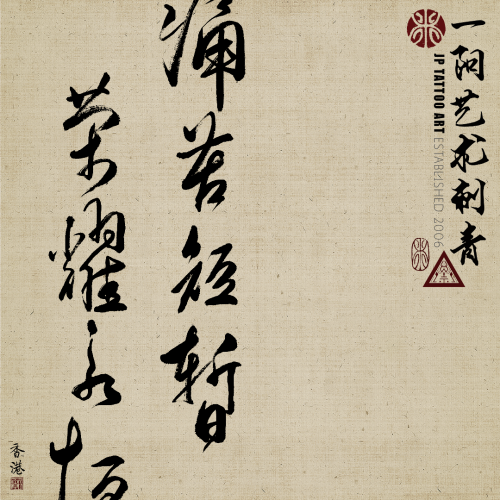 一阳艺术刺青
JP TATTOO ART ESTABLISHED 2006
痛苦短暂
荣耀永恒
香港